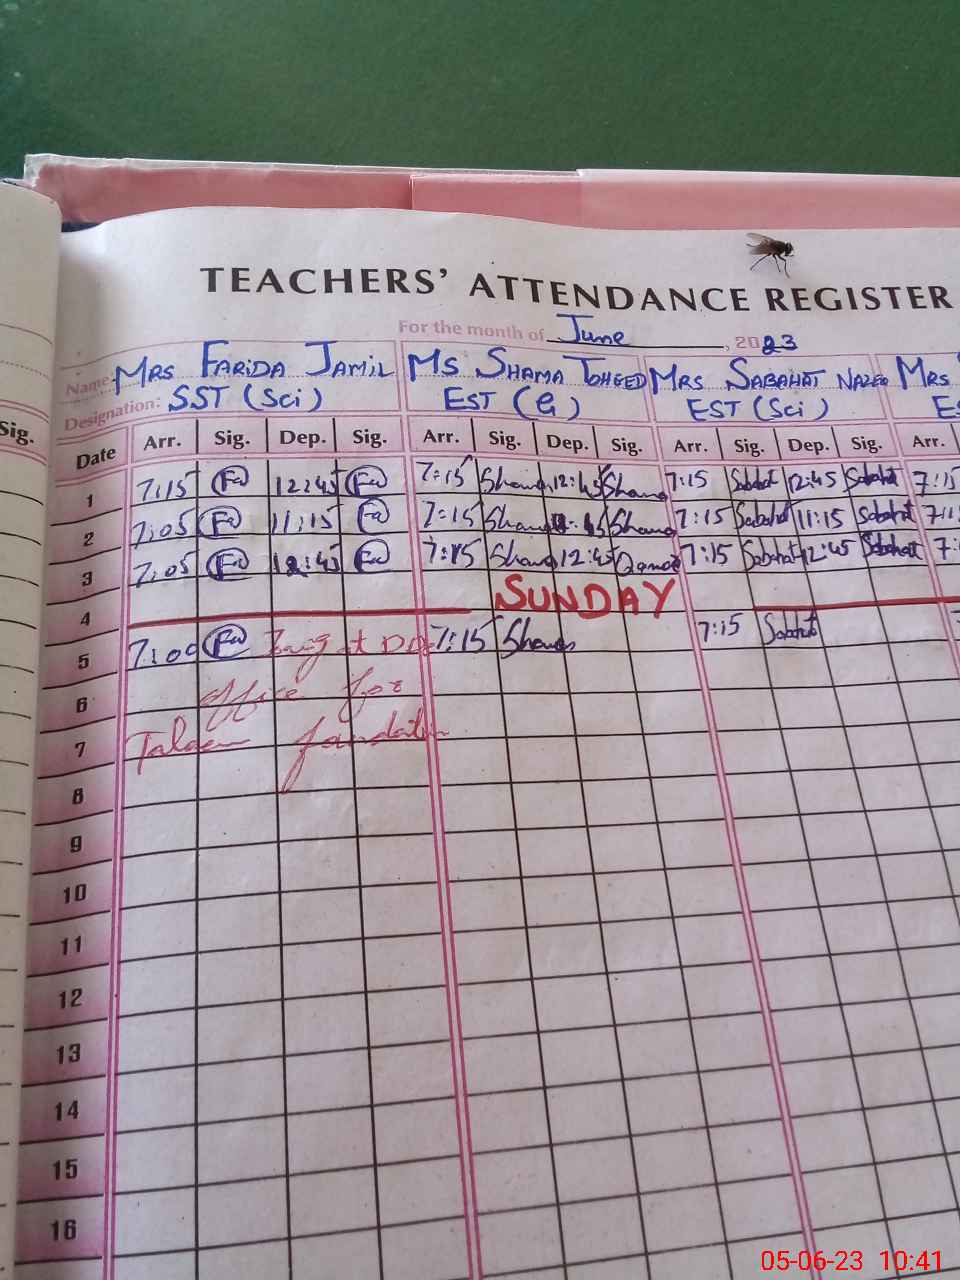 TEACHERS' ATTENDANCE REGISTER
For the month of June, 2023
Name: MRS FARIDA JAMIL MS SHAMA TOHEED MRS SABAHAT NAZEO MRS
Designation: SST (Sci) EST (G) EST (Sci) ES
Sig. Date Arr. Sig. Dep. Sig. Arr. Sig. Dep. Sig. Arr. Sig. Dep. Sig. Arr.
1 7:15 Fa 12:45 Fa 7:15 Shama 12:45 Shama 7:15 Sabahat 12:45 Sabahat 7:15
2 7:05 Fa 11:15 Fa 7:15 Shama Shama 7:15 Sabahat 11:15 Sabahat 7:1
3 7:05 Fa 12:45 Fa 7:15 Shama 12:45 7:15 Sabahat 12:45 Sabahat 7:
4 SUNDAY
5 7:00 Fa at 7:15 Shama 7:15 Sabahat 7:
6 office for
7
8
9
10
11
12
13
14
15
16
05-06-23 10:41